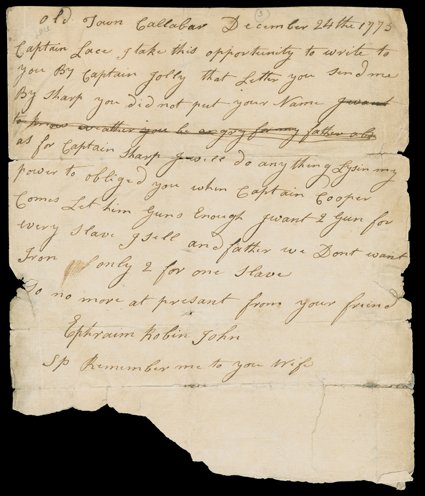 Old Town Callabar December 24the 1775
Captain Lace I take this opportunity to write to
you By Captain Jolly that Letter you send me
By Sharp you did not put your Name I want
to know weather you be angry for my father old
as for Captain Sharp I will do any thing Lysin my
power to obliged you when Captain Cooper
Comes Let him Guns Enough I want 2 Gun for
every Slave I Sell and father we Dont want
Iron only 2 for one Slave
So no more at presant from your friend
Ephraim Robin John
SP Remember me to you Wife